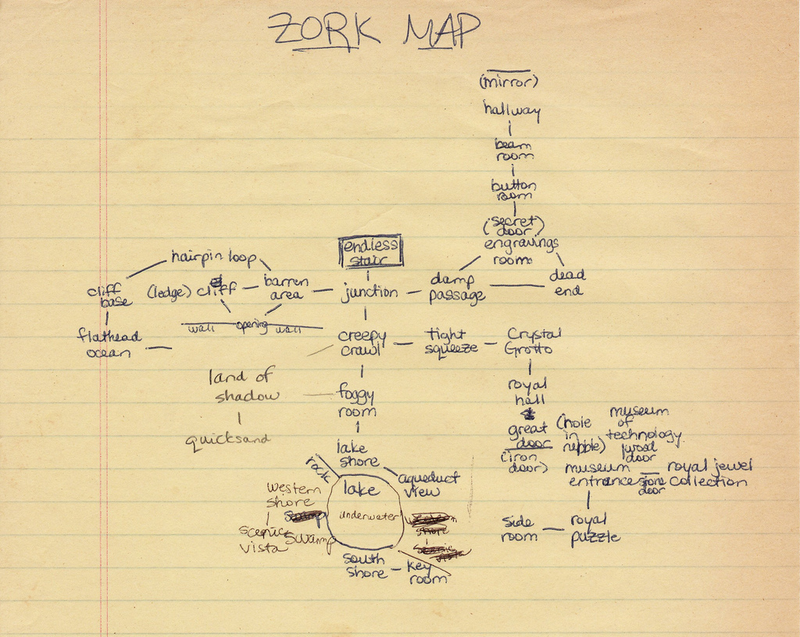 ZORK MAP
(mirror)
hallway
beam
room
button
room
(secret)
door
engravings
room
endless
stair
hairpin loop
damp
passage
dead
end
junction
barren
area
(ledge) cliff
cliff
base
wall opening wall
flathead
ocean
creepy
crawl
tight
squeeze
Crystal
Grotto
land of
shadow
quicksand
foggy
room
royal
hall
great
door
(iron
door)
(hole
in
museum
of
technology
wood
door
museum
entrance
stone
door
royal jewel
collection
lake
shore
rock
aqueduct
view
lake
underwater
western
shore
swamp
scenic
vista
swamp
western
shore
scenic
vista
south
shore
key
room
side
room
royal
puzzle